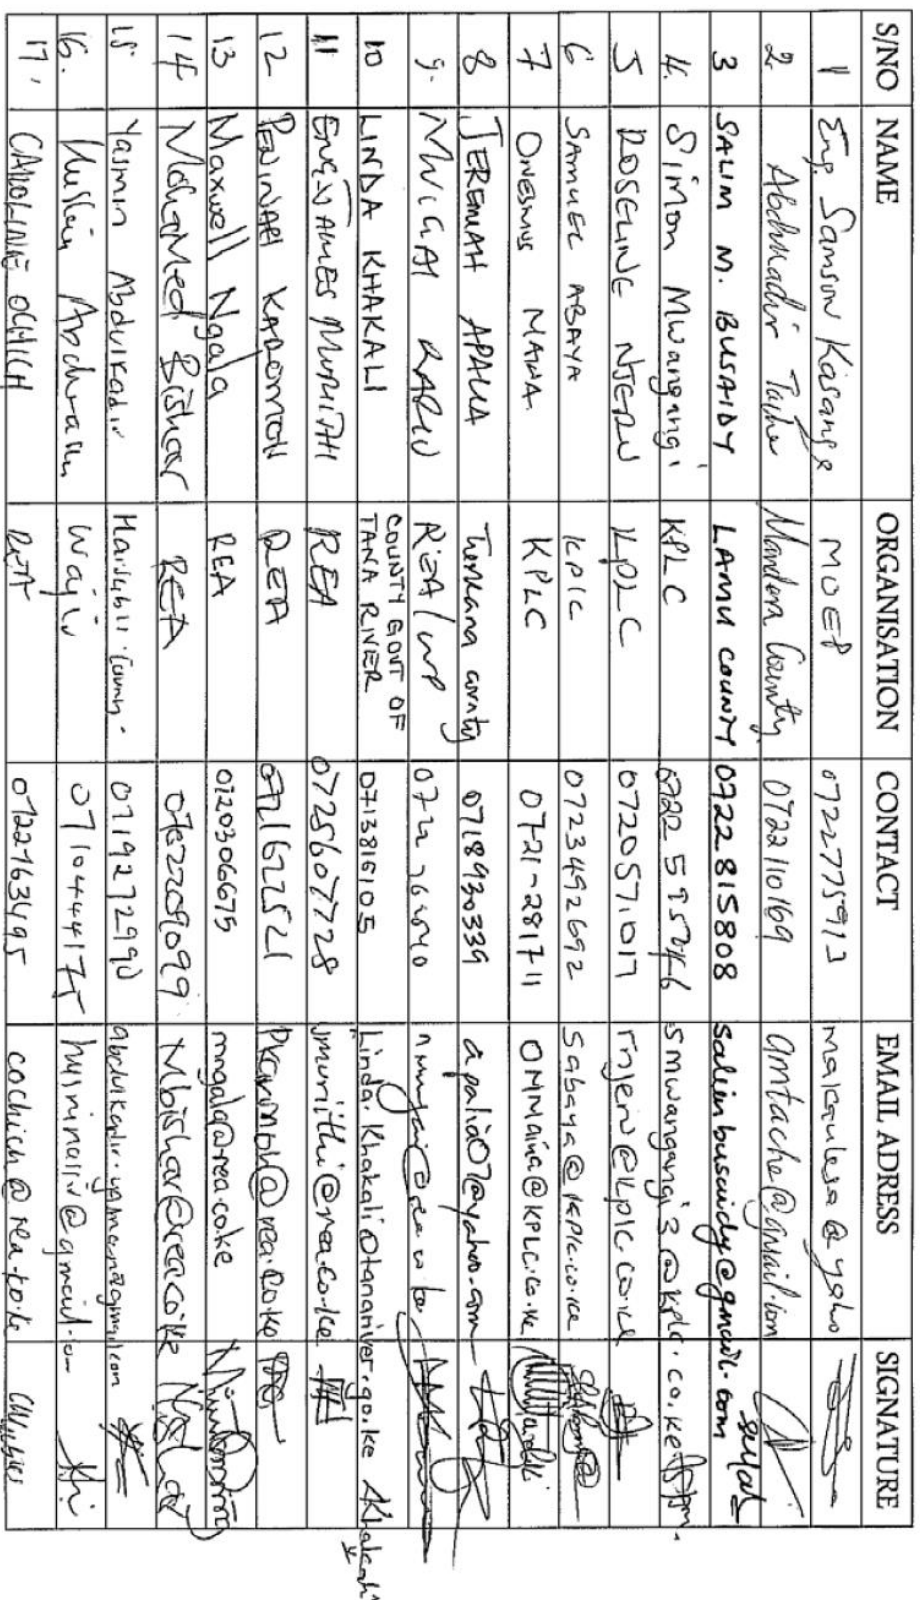 S/NO NAME ORGANISATION CONTACT EMAIL ADRESS SIGNATURE
1 Eng. Samson Kasange MOEP 0722775913
2 Abdikadir Mandera County 0722110169 amtache@gmail.com
3 SALIM M. BUSAIDY LAMU COUNTY 0722 815808 salimbusaidy@gmail.com
4. Simon Mwangangi KPLC smwangangi3@kplc.co.ke
5 ROSELINE NJERU KPLC 0720571017 rnjeru@kplc.co.ke
6 SAMUEL ABAYA KPLC 0723492692 sabaya@kplc.co.ke
7 ONESMUS MAINA KPLC 0721-281711 OMMaina@KPLC.co.ke
8 JEREMIAH APALIA Turkana county 0718930339 apalia07@yahoo.com
9. MWIGAI KARIU REA/
10 LINDA KHAKALI COUNTY GOVT OF TANA RIVER 0713816105 Linda.Khakali@tanariver.go.ke
11 ENG. JAMES MURITHI REA 0725607728 jmurithi@rea.co.ke
12 PENINAH KAROMOH REA 0721672521
13 Maxwell Ngala REA 0720306675 mngala@rea.co.ke
14 Mohamed Bishar REA Mbishar@rea.co.ke
15 Yasmin Abdulkadir Marsabit County. 0719272990
16. Wajir 0710444175
17. CAROLINE OCHICH REA 0722763495 cochich@rea.co.ke